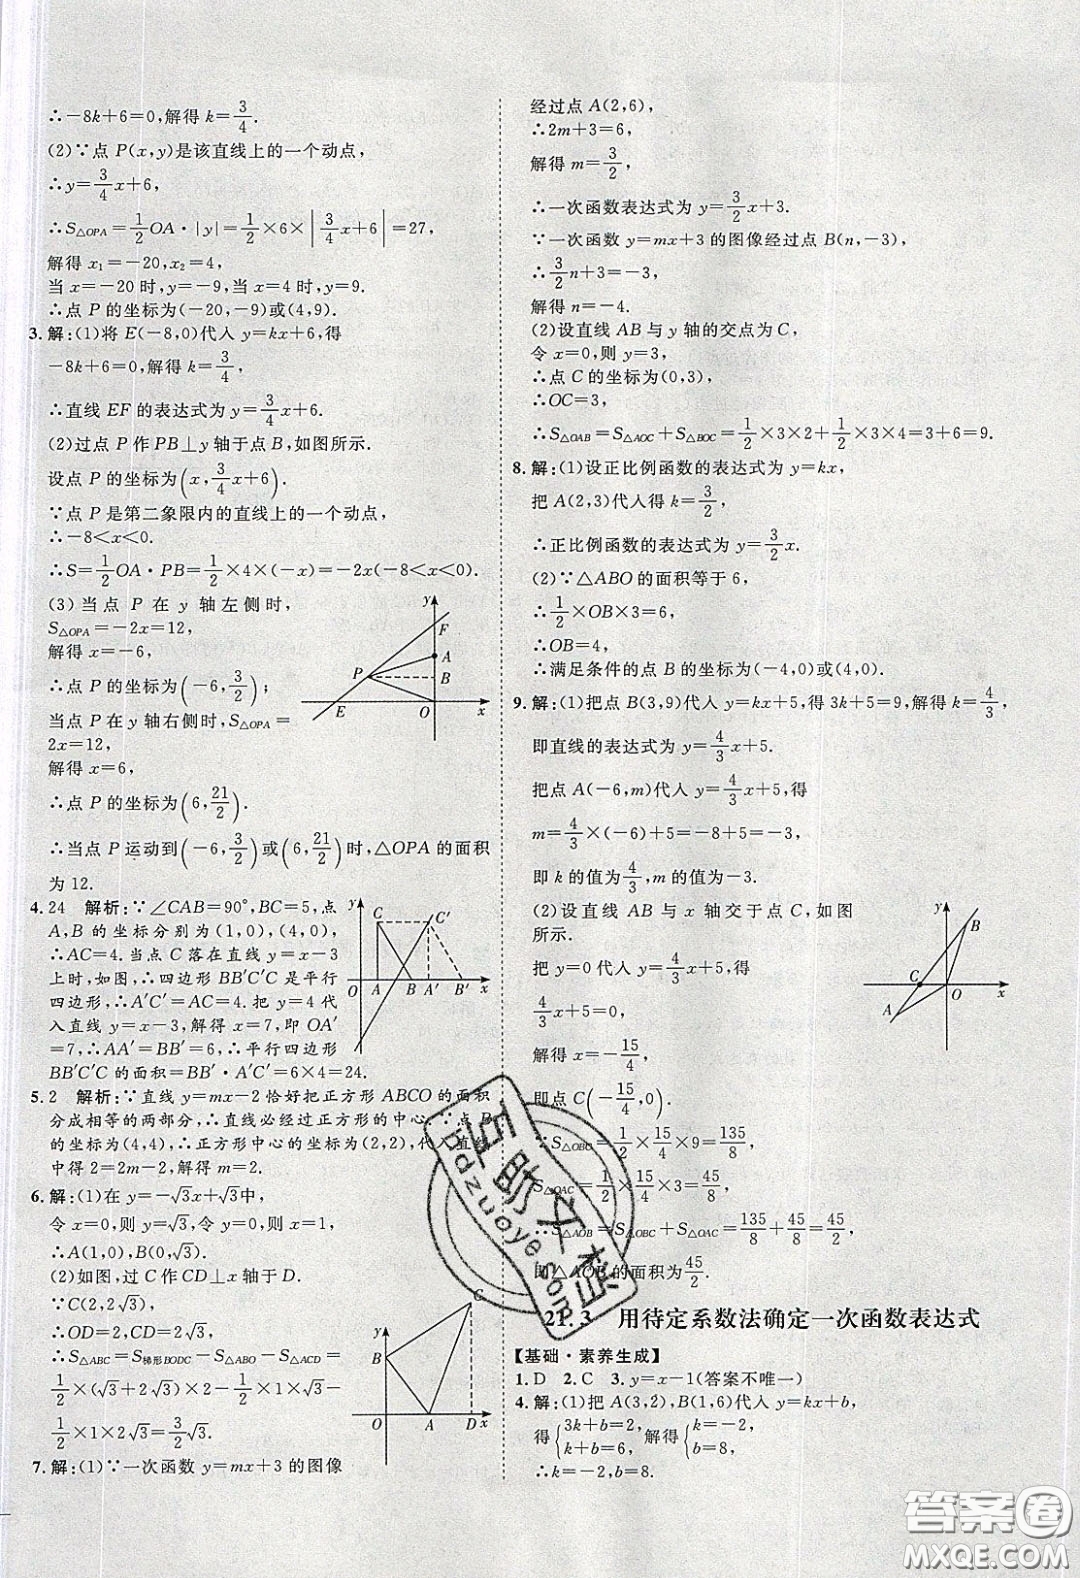 ∴-8k+6=0,解得 k=3/4.
(2)∵点 P(x,y)是该直线上的一个动点,
∴y=3/4x+6,
∴S△OPA=1/2OA·|y|=1/2×6×|3/4x+6|=27,
解得 x₁=-20,x₂=4,
当 x=-20 时,y=-9,当 x=4 时,y=9.
∴点 P 的坐标为(-20,-9)或(4,9).
3.解:(1)将 E(-8,0)代人 y=kx+6,得
-8k+6=0,解得 k=3/4,
∴直线 EF 的表达式为 y=3/4x+6.
(2)过点 P 作 PB⊥y 轴于点 B,如图所示.
设点 P 的坐标为(x,3/4x+6).
∵点 P 是第二象限内的直线上的一个动点,
∴-8<x<0.
∴S=1/2OA·PB=1/2×4×(-x)=-2x(-8<x<0).
(3)当点 P 在 y 轴左侧时,
S△OPA=-2x=12,
解得 x=-6,
∴点 P 的坐标为(-6,3/2);
当点 P 在 y 轴右侧时,S△OPA=
2x=12,
解得 x=6,
∴点 P 的坐标为(6,21/2).
∴当点 P 运动到(-6,3/2)或(6,21/2)时,△OPA 的面积
为 12.
y
F
A
P
B
E
O
x
4.24 解析:∵∠CAB=90°,BC=5,点
A,B 的坐标分别为(1,0),(4,0),
∴AC=4.当点 C 落在直线 y=x-3
上时,如图,∴四边形 BB′C′C 是平行
四边形,∴A′C′=AC=4.把 y=4 代
入直线 y=x-3,解得 x=7,即 OA′
=7,∴AA′=BB′=6,∴平行四边形
BB′C′C 的面积=BB′·A′C′=6×4=24.
y
C
C′
O
A
B
A′
B′
x
5.2 解析:∵直线 y=mx-2 恰好把正方形 ABCO 的面积
分成相等的两部分,∴直线必经过正方形的中心.∵点 B
的坐标为(4,4),∴正方形中心的坐标为(2,2),代入直线
中得 2=2m-2,解得 m=2.
6.解:(1)在 y=-√3x+√3中,
令 x=0,则 y=√3,令 y=0,则 x=1,
∴A(1,0),B(0,√3).
(2)如图,过 C 作 CD⊥x 轴于 D.
∵C(2,2√3),
∴OD=2,CD=2√3,
∴S△ABC=S梯形BODC-S△AOB-S△ACD=
1/2×(√3+2√3)×2-1/2×1×√3-
1/2×1×2√3=3√3/2.
y
C
B
O
A
D
x
7.解:(1)∵一次函数 y=mx+3 的图像
经过点 A(2,6),
∴2m+3=6,
解得 m=3/2,
∴一次函数表达式为 y=3/2x+3.
∵一次函数 y=mx+3 的图像经过点 B(n,-3),
∴3/2n+3=-3,
解得 n=-4.
(2)设直线 AB 与 y 轴的交点为 C,
令 x=0,则 y=3,
∴点 C 的坐标为(0,3),
∴OC=3,
∴S△OAB=S△AOC+S△BOC=1/2×3×2+1/2×3×4=9.
8.解:(1)设正比例函数的表达式为 y=kx,
把 A(2,3)代人得 k=3/2,
∴正比例函数的表达式为 y=3/2x.
(2)∵△ABO 的面积等于 6,
∴1/2×OB×3=6,
∴OB=4,
∴满足条件的点 B 的坐标为(-4,0)或(4,0).
9.解:(1)把点 B(3,9)代人 y=kx+5,得 3k+5=9,解得 k=4/3,
即直线的表达式为 y=4/3x+5.
把点 A(-6,m)代人 y=4/3x+5,得
m=4/3×(-6)+5=-8+5=-3,
即 k 的值为4/3,m 的值为-3.
(2)设直线 AB 与 x 轴交于点 C,如图
所示.
把 y=0 代入 y=4/3x+5,得
4/3x+5=0,
解得 x=-15/4,
即点 C(-15/4,0).
∵S△OBC=1/2×15/4×9=135/8,
S△OAC=1/2×15/4×3=45/8,
∴S△AOB=S△OBC+S△OAC=135/8+45/8=45/2,
即△AOB 的面积为45/2.
y
B
C
O
x
A
21.3 用待定系数法确定一次函数表达式
【基础·素养生成】
1.D 2.C 3.y=x-1(答案不唯一)
4.解:(1)把 A(3,2),B(1,6)代人 y=kx+b,
得{3k+b=2, k+b=6,解得{k=-2, b=8,
∴k=-2,b=8.
互助文档
hdzuoye.com
答案圈
MXQE.COM